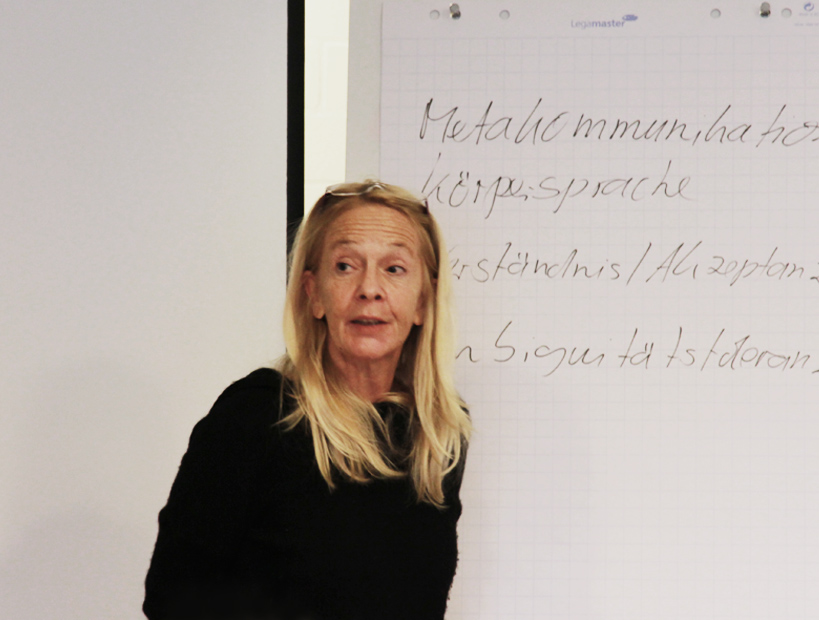 Legamaster
Metakommunikatio
Körpersprache
rständnis / Akzeptanz
mbiguitätstoleranz